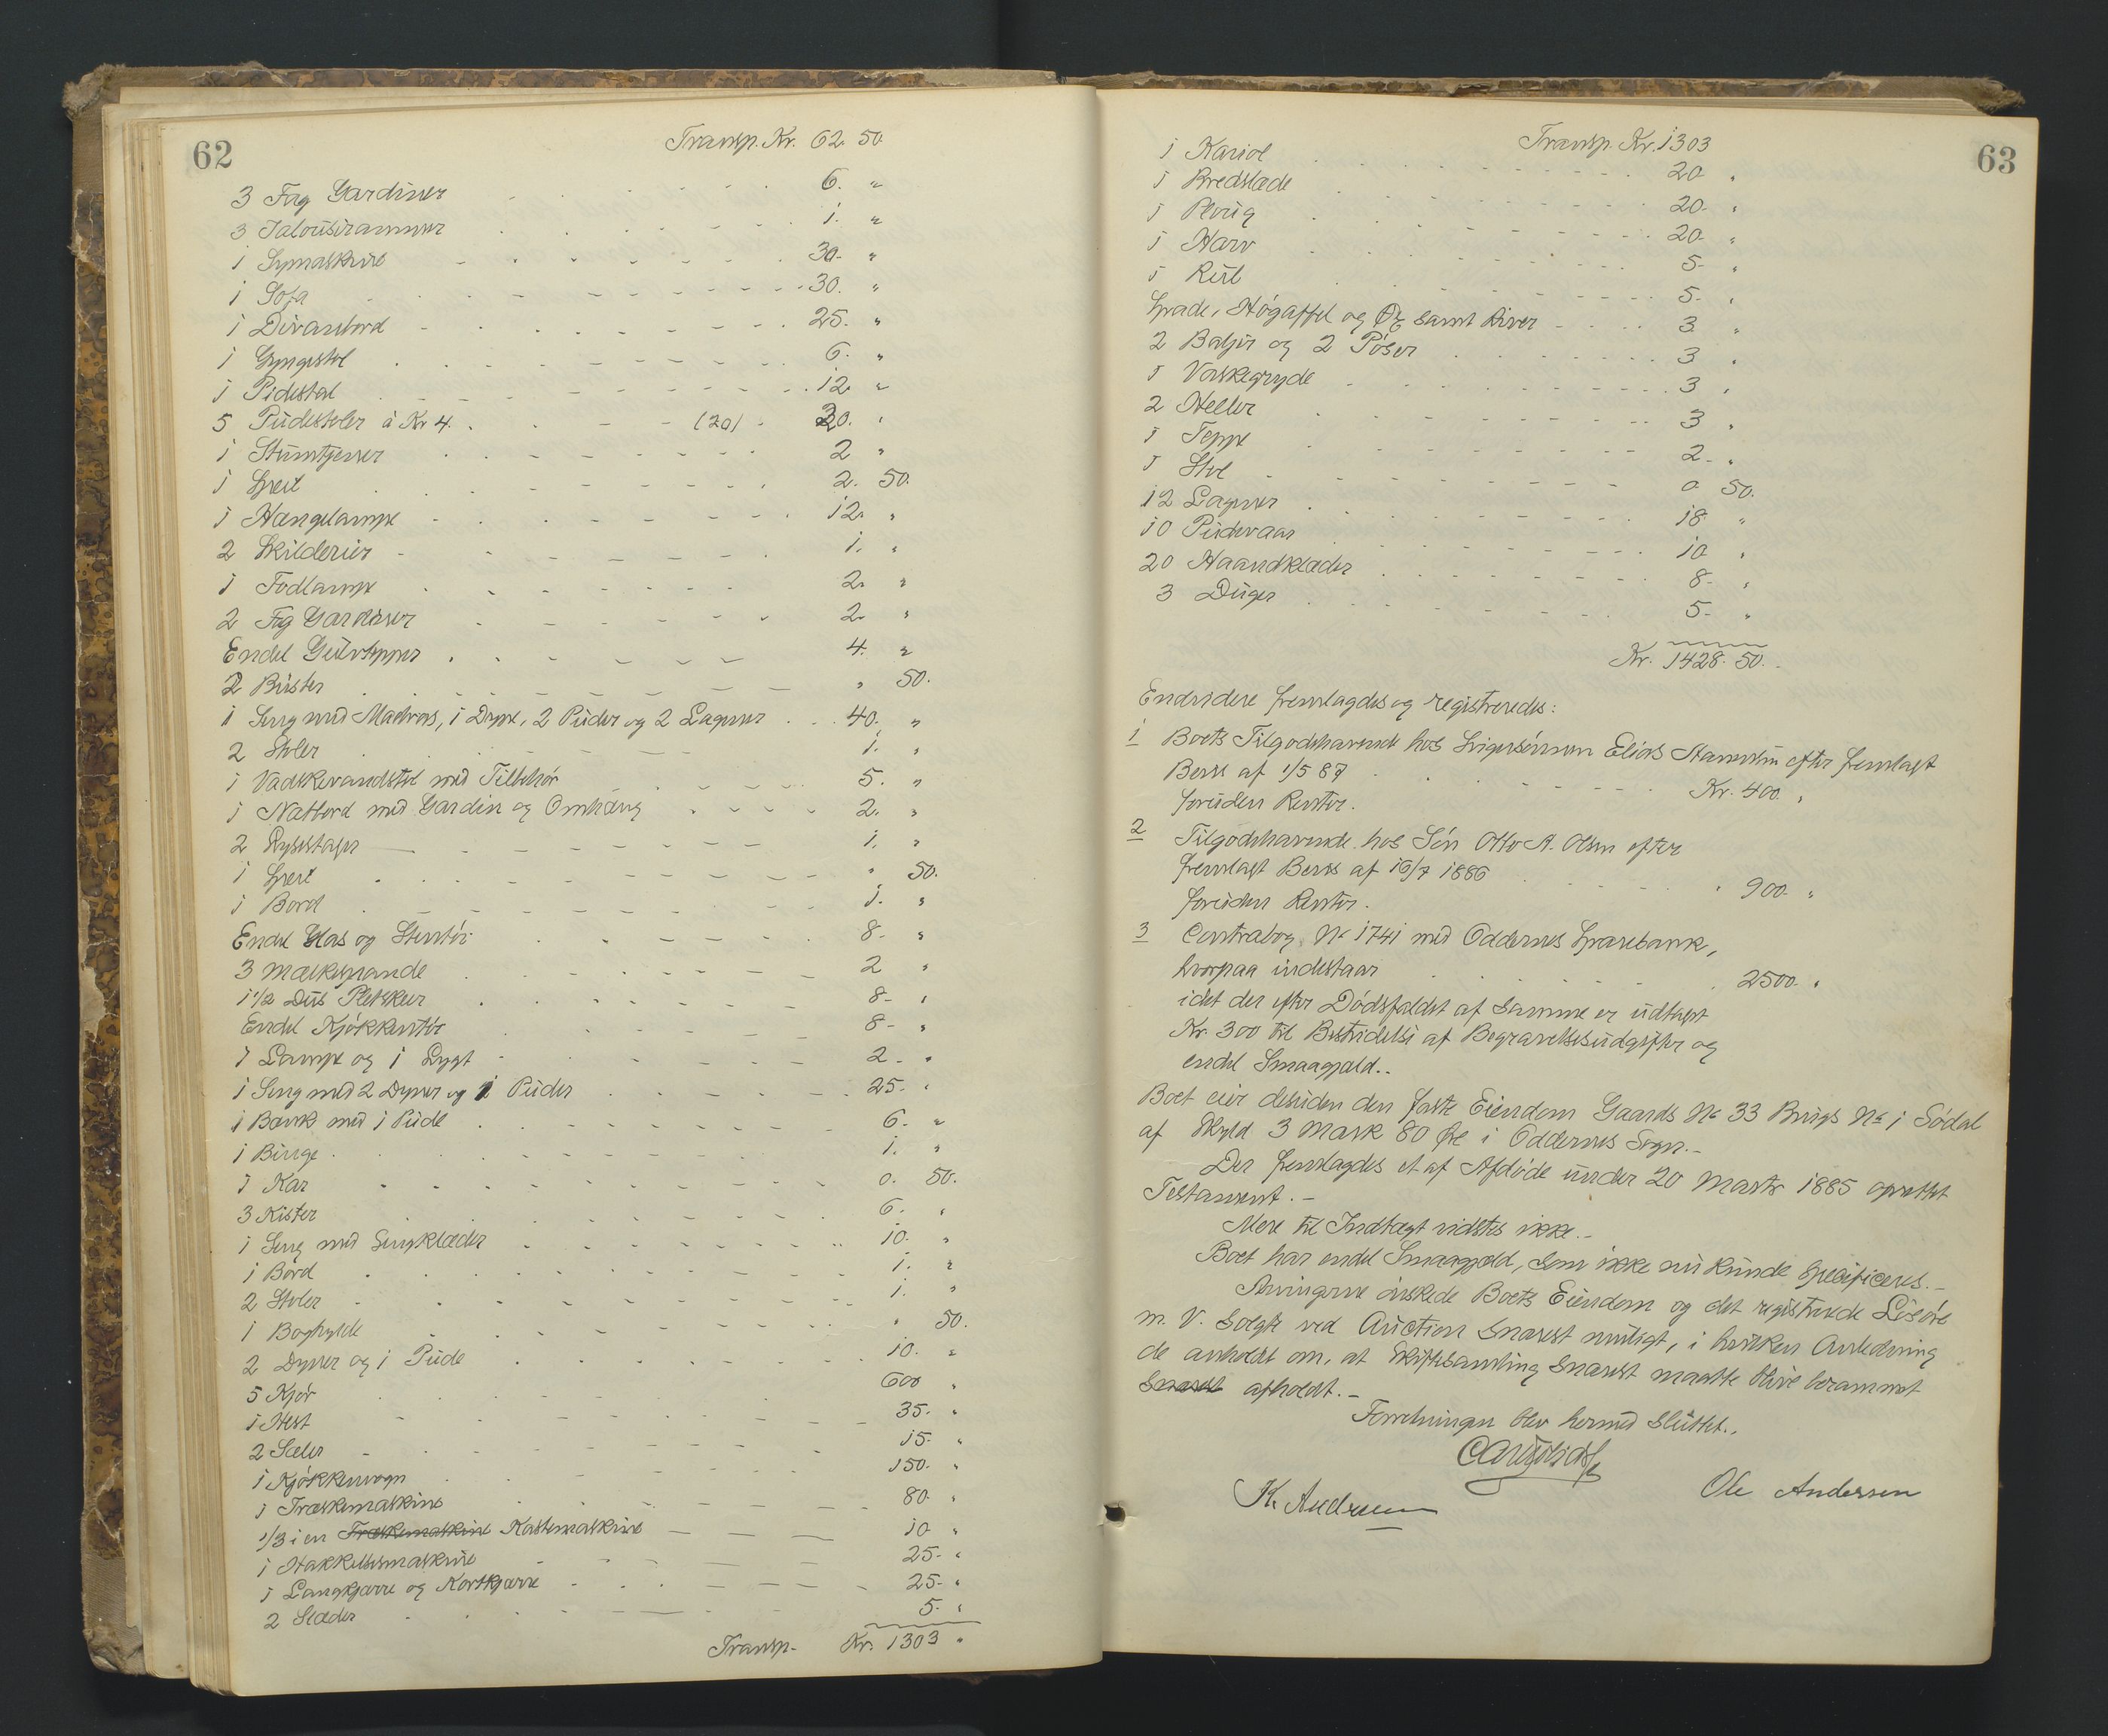 62
Transp. Kr. 62. 50.
3 Fag Gardiner 6. "
3 Jalousirammer 1. "
1 Symaskine 30. "
1 Sofa 30. "
1 Divanbord 25. "
1 Gyngestol 6. "
1 Pidestal 12. "
5 Pudestoler à Kr 4. (20) 20. "
1 Stumtjener 2 "
1 Speil 2. 50.
1 Hængelampe 12. "
2 Skilderier 1. "
1 Fodlampe 2. "
2 Fag Gardiner 2. "
Endel Gulvtepper 4. "
2 Buster " 50.
1 Seng med Madras, 1 Dyne, 2 Puder og 2 Lagner 40. "
2 Stoler 1. "
1 Vadskevandstol med Tilbehør 5. "
1 Natbord med Gardin og Omhæng 2. "
2 Lysestager 1. "
1 Speil " 50.
1 Bord 1. "
Endel Glas og Stentøi 8. "
3 Melkespande 2 "
1 1/2 Dus Pletskeer 8. "
Endel Kjøkkentøi 8. "
1 Lampe og 1 Lygt 2. "
1 Seng med 2 Dyner og 1 Puder 25. "
1 Bænk med 1 Pude 6. "
1 Binge 1. "
1 Kar 0. 50.
3 Kister 6. "
1 Seng med Sengklæder 10. "
1 Bord 1. "
2 Stoler 1. "
1 Boghylde " 50.
2 Dyner og 1 Pude 10. "
5 Kjør 600 "
1 Hest 35. "
2 Sæler 15. "
1 Kjøkkenvogn 150. "
1 Træskemaskine 80. "
1/3 i en Træskemaskine Kastemaskine 10 "
1 Hakkelsesmaskine 25. "
1 Langkjærre og Kortkjærre 25. "
2 Slæder 5. "
Transp. Kr. 1303 "
63
Transp. Kr. 1303
1 Kariol 20. "
1 Bredslæde 20. "
1 Ploug 20. "
1 Harv 5. "
1 Reil 5. "
Spade, Høgaffel og Øx samt River 3. "
2 Baljer og 2 Pøser 3 "
1 Vaskegryde 3 "
2 Heller 3 "
1 Teppe 2. "
1 Stol 0. 50.
12 Lagner 18 "
10 Pudevaar 10 "
20 Haandklæder 8. "
3 Duger 5. "
Kr. 1428. 50.
Endvidere fremlagdes og registreredes:
1 Boets Tilgodehavende hos Svigersønnen Elias efter fremlagt
Bevis af 1/5 87 Kr. 400. "
foruden Renter.
2 Tilgodehavende hos Søn Otto A. Olsen efter
fremlagt Bevis af 16/7 1886 " 900. "
foruden Renter.
3 Contrabog No 1741 med Oddernes Sparebank,
hvorpaa indestaar 2500. "
idet der efter Dødsfaldet af samme er udtaget
Kr. 300 til Bestridelse af Begravelsesudgifter og
endel Smaagjæld..
Boet eier desuden den faste Eiendom Gaards No 33 Brugs No 1 Sødal
af Skyld 3 Mark 80 Øre i Oddernes Sogn.-
Der fremlagdes et af Afdøde under 20 Marts 1885 oprettet
Testament.-
Mere til Indtægt vidstes ikke.-
Boet har endel Smaagjæld, som ikke nu kunde specificeres.-
Arvingerne ønskede Boets Eiendom og det registrerede Løsøre
m. V. solgte ved Auction snarest muligt, i hvilken Anledning
de anholdt om, at Skiftesamling snarest maatte blive berammet
snarest afholdt.-
Forretningen blev hermed sluttet..
K. Andersen
Ole Andersen